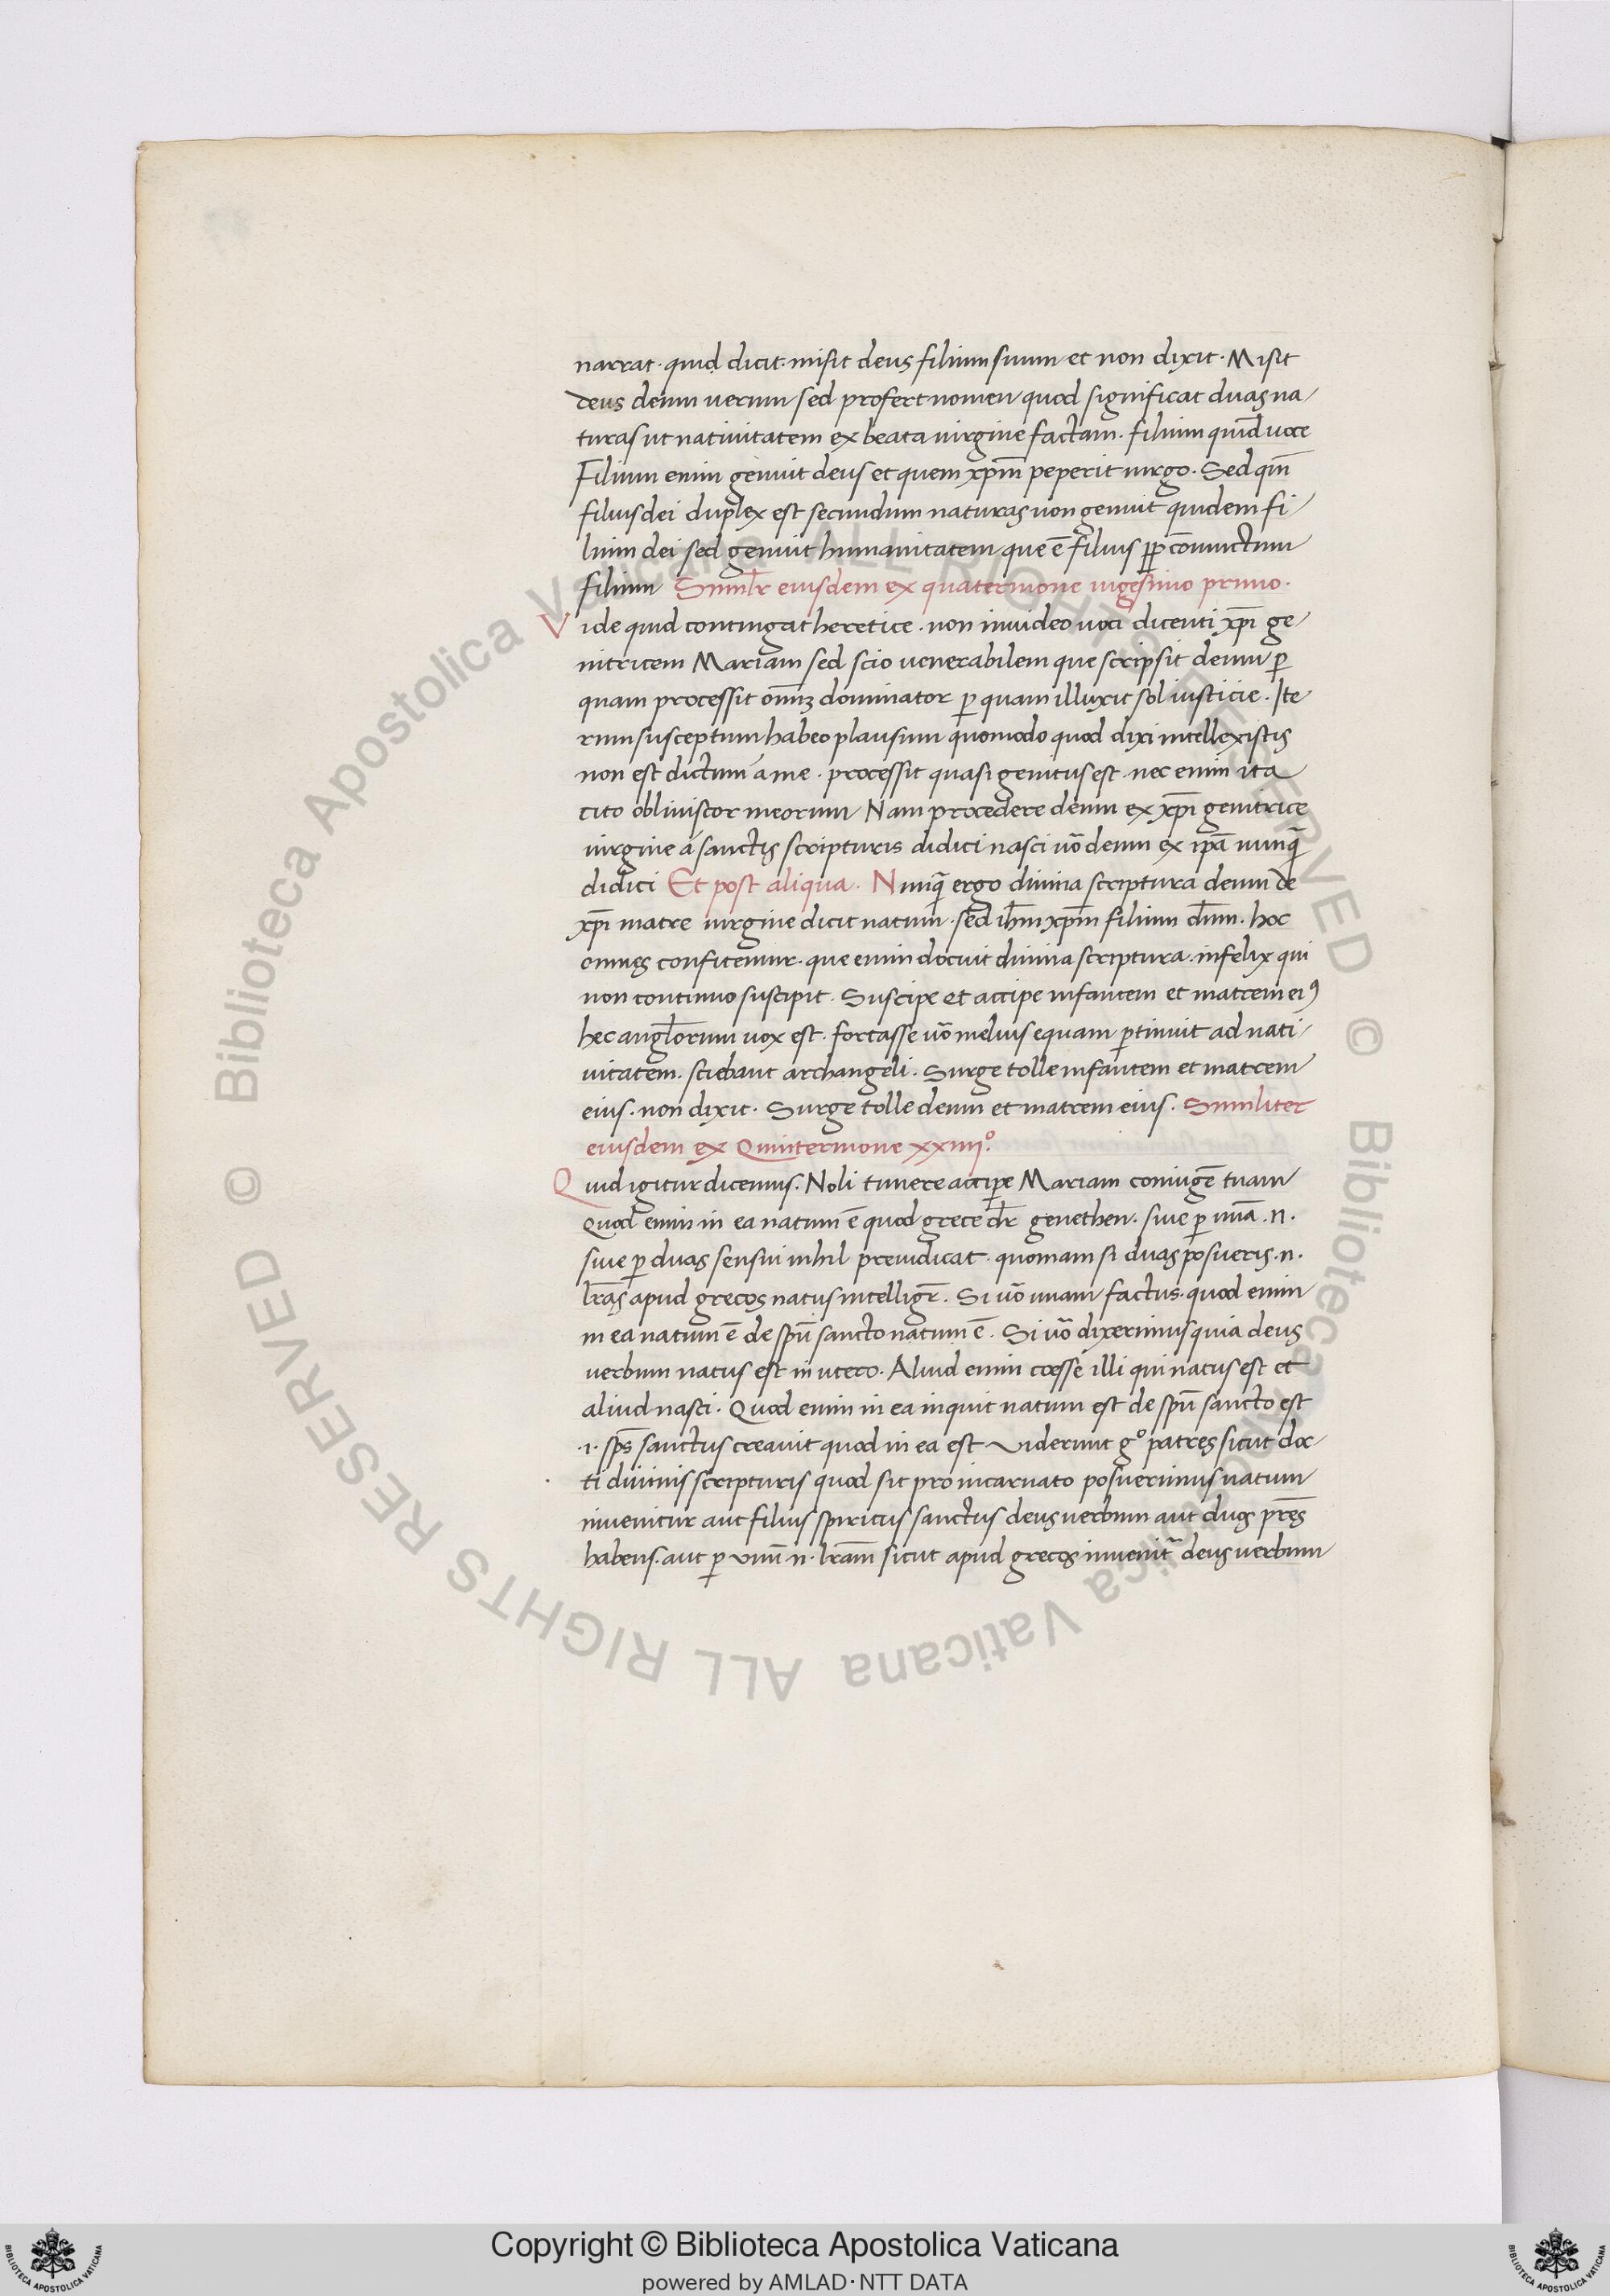 narrat · quid dicit · misit deus filium suum et non dixit · Misit
deus deum uerum sed profert nomen quod significat duas na/
turas ut natiuitatem ex beata uirgine factam · filium quid̄ uoce
Filium enim genuit deus et quem xp̄m peperit uirgo · Sed qm̄
filius dei duplex est secundum naturas non genuit quidem fi/
lium dei sed genuit humanitatem que ē filius ꝑꝑ coniunctum
filium Simil̄r eiusdem ex quaternione uigesimo primo ·
Vide quid contingat heretice · non inuideo uoci dicenti xp̄i ge/
nitricem Mariam sed scio uenerabilem que scripsit deum ꝑ
quam processit om̄iꝫ dominator ꝑ quam illuxit sol iusticie · Ite
rum susceptum habeo plausum quomodo quod dixi intellexistis
non est dictum á me · processit quasi genitus est · nec enim ita
cito obliuiscor meorum Nam procedere deum ex xp̄i genitrice
uirgine á sanctis scripturis didici nasci uō deum ex ip̄a nunq̄
didici Et post aliqua · Nunq̄ ergo diuina scriptura deum de
xp̄i matre uirgine dicit natum · sed ih̄m xp̄m filium d̄um · hoc
omnes confitemur · que enim docuit diuina scriptura · infelix qui
non continuo suscipit · Suscipe et accipe infantem et matrem eiꝰ
hec angl̄orum uox est · fortasse uō melius equam ꝑtinuit ad nati/
uitatem · sciebant archangeli · Surge tolle infantem et matrem
eius · non dixit · Surge tolle deum et matrem eius · Similiter
eiusdem ex Quinternione xxiiijº ·
Quid igitur dicemus · Noli timere accipe Mariam coniugē tuam
Quod enim in ea natum ē quod grece d̄r genethen · siue ꝑ unā · n ·
siue ꝑ duas sensui nihil preiudicat · quoniam si duas posueris · n ·
lr̄as apud grecos natus intelligr̄ · Si uō unam factus · quod enim
in ea natum ē de spū sancto natum ē · Si uō dixerimus quia deus
uerbum natus est in utero · Aliud enim coesse illi qui natus est et
aliud nasci · Quod enim in ea inquit natum est de spū sancto est
· i · sp̄s sanctus creauit quod in ea est uiderunt gº patres sicut doc/
ti diuinis scripturis quod sit pro incarnato posuerimus natum
inuenitur aut filius spiritus sanctus deus uerbum aut duos pr̄es
habens · aut ꝑ unū n · lr̄am sicut apud grecos inuenit̄ deus uerbum
Copyright © Biblioteca Apostolica Vaticana
powered by AMLAD·NTT DATA
© Biblioteca Apostolica Vaticana ALL RIGHTS RESERVED © Biblioteca Apostolica Vaticana ALL RIGHTS RESERVED
BIBLIOTECA APOSTOLICA VATICANA
BIBLIOTECA APOSTOLICA VATICANA